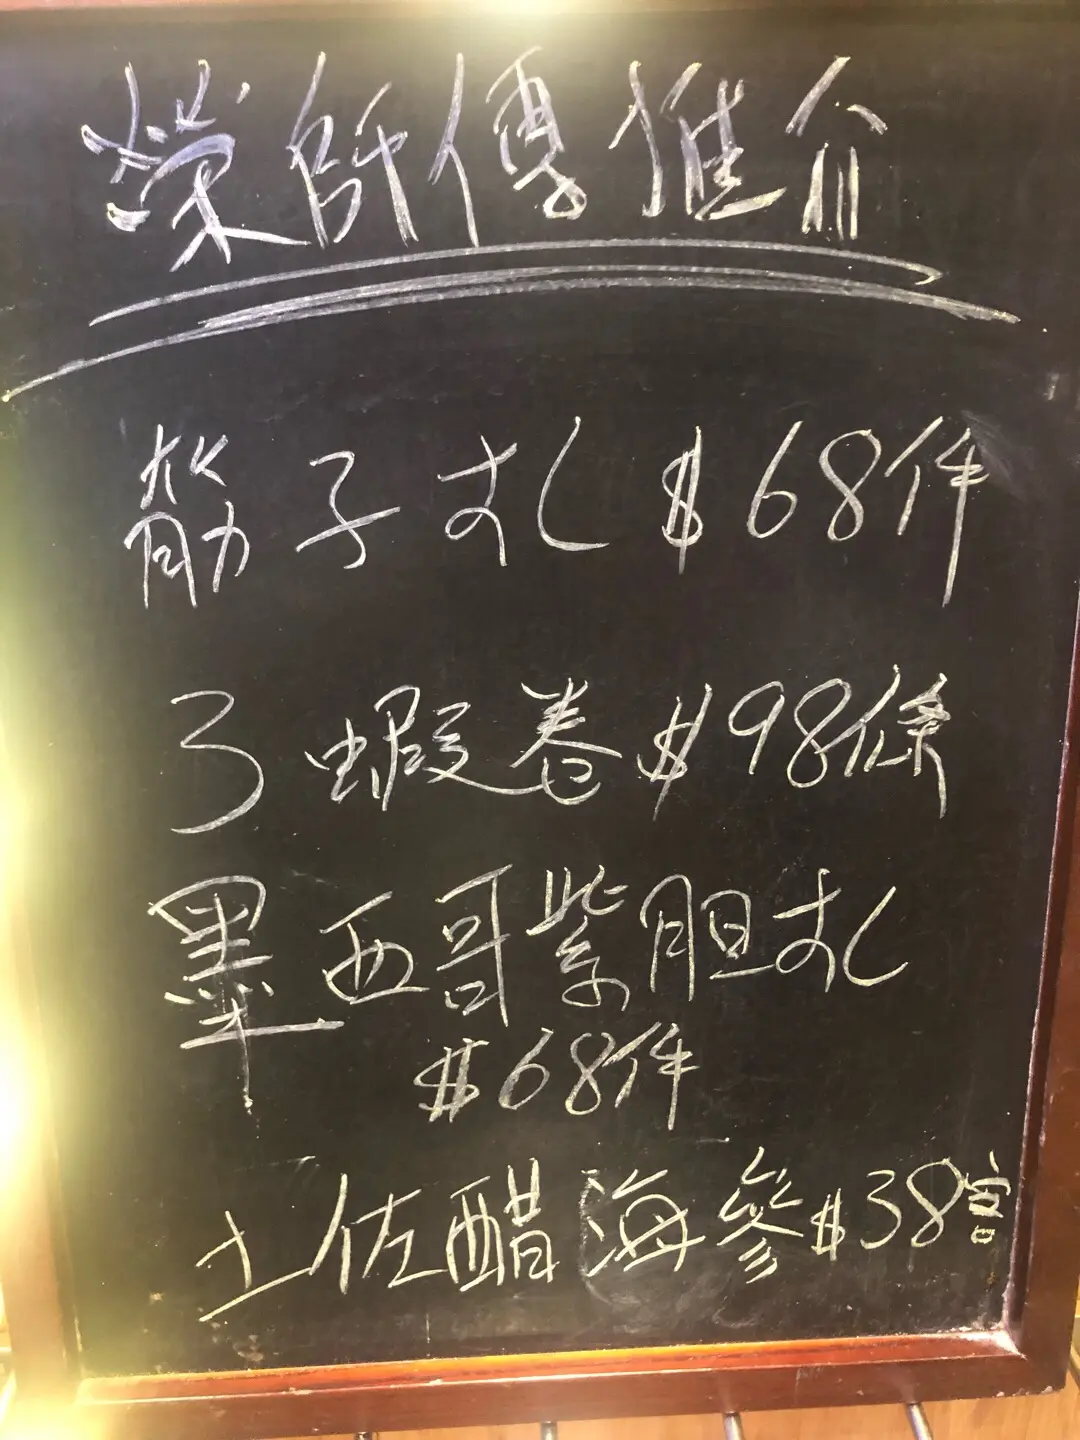 榮師傅推介
筋子扎$68件
3蝦卷$98條
墨西哥紫胆扎
$68件
土佐醋海參$38客